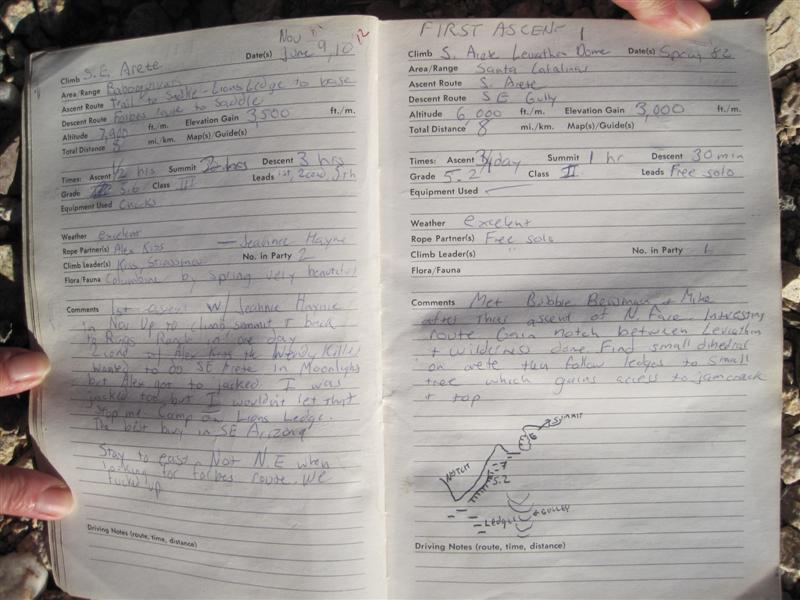 Nov 11 12
Climb S.E. Arete Date(s) June 9, 10
Area/Range Baboquivari
Ascent Route Trail to Saddle - Lions Ledge to base
Descent Route Forbes route to saddle
Altitude 7,900 ft./m. Elevation Gain 3,500 ft./m.
Total Distance 8 mi./km. Map(s)/Guide(s)
Times: Ascent 1/2 hrs Summit 2 hrs Descent 3 hrs
Grade III 5.6 Class III Leads 1st, 2cnd, 5th
Equipment Used Chocks
Weather excelent
Rope Partner(s) Alex Kiss — Jeannie Hayne
Climb Leader(s) Kiss, No. in Party 2
Flora/Fauna Columbine by Spring very beautiful
Comments 1st ascent w/ Jeannie Hayne
in Nov Up to climb summit + back
to Riggs Ranch in one day
2cend w/ Alex Kiss the Wendy Killer
wanted to do SE Arete in Moonlight
but Alex got to jacked. I was
jacked too but I wouldn't let that
stop me Camp on Lions Ledge.
The best bivy in SE Arizona
Stay to east. Not N.E when
looking for forbes route. We
fucked up
Driving Notes (route, time, distance)
FIRST ASCENT 1
Climb S. Arete Leviathin Dome Date(s) Spring 82
Area/Range Santa Catalinas
Ascent Route S. Arete
Descent Route SE Gully
Altitude 6,000 ft./m. Elevation Gain 3,000 ft./m.
Total Distance 8 mi./km. Map(s)/Guide(s)
Times: Ascent 3/4 day Summit 1 hr Descent 30 min
Grade 5.2 Class II Leads Free solo
Equipment Used
Weather excelent
Rope Partner(s) Free solo
Climb Leader(s) " No. in Party 1
Flora/Fauna
Comments Met Bobbie Bewman + Mike
after thier ascent of N. Face. Intresting
route Gain notch between Leviathin
+ Wilderness dome Find small dihedral
on arete then follow ledges to small
tree which gains access to jamcrack
+ top
SUMMIT
NOTCH
7
5.2
LEDGES
GULLEY
Driving Notes (route, time, distance)